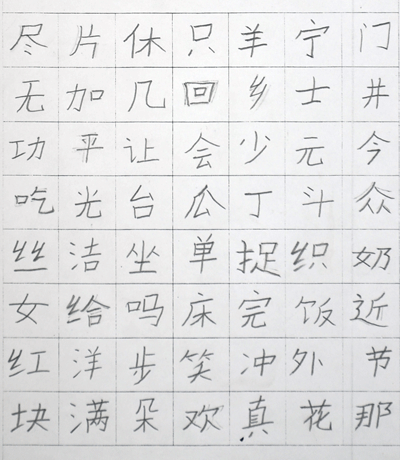 尽片休只羊宁门
无加几回乡士井
功平让会少元今
吃光台瓜丁斗众
丝洁坐单捉织奶
女给吗床完饭近
红洋步笑冲外节
块满朵欢真花那